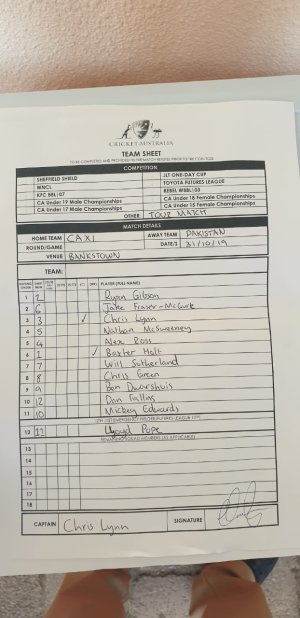 CRICKET AUSTRALIA
TEAM SHEET
TO BE COMPLETED AND PROVIDED TO THE MATCH REFEREE PRIOR TO THE COIN TOSS
COMPETITION
SHEFFIELD SHIELD JLT ONE-DAY CUP
WNCL TOYOTA FUTURES LEAGUE
KFC BBL|07 REBEL WBBL|03
CA Under 19 Male Championships CA Under 18 Female Championships
CA Under 17 Male Championships CA Under 15 Female Championships
OTHER TOUR MATCH
MATCH DETAILS
HOME TEAM CA XI AWAY TEAM PAKISTAN
ROUND/GAME DATE/S 31/10/19
VENUE BANKSTOWN
TEAM:
PLAYER (FULL NAME)
1 2 Ryan Gibson
2 6 Jake Fraser-McGurk
3 3 ✓ Chris Lynn
4 5 Nathan McSweeney
5 4 Alex Ross
6 1 ✓ Baxter Holt
7 7 Will Sutherland
8 8 Chris Green
9 9 Ben Dwarshuis
10 12 Dan Fallins
11 10 Mickey Edwards
12 11 Lloyd Pope
13
14
15
16
17
18
CAPTAIN Chris Lynn SIGNATURE